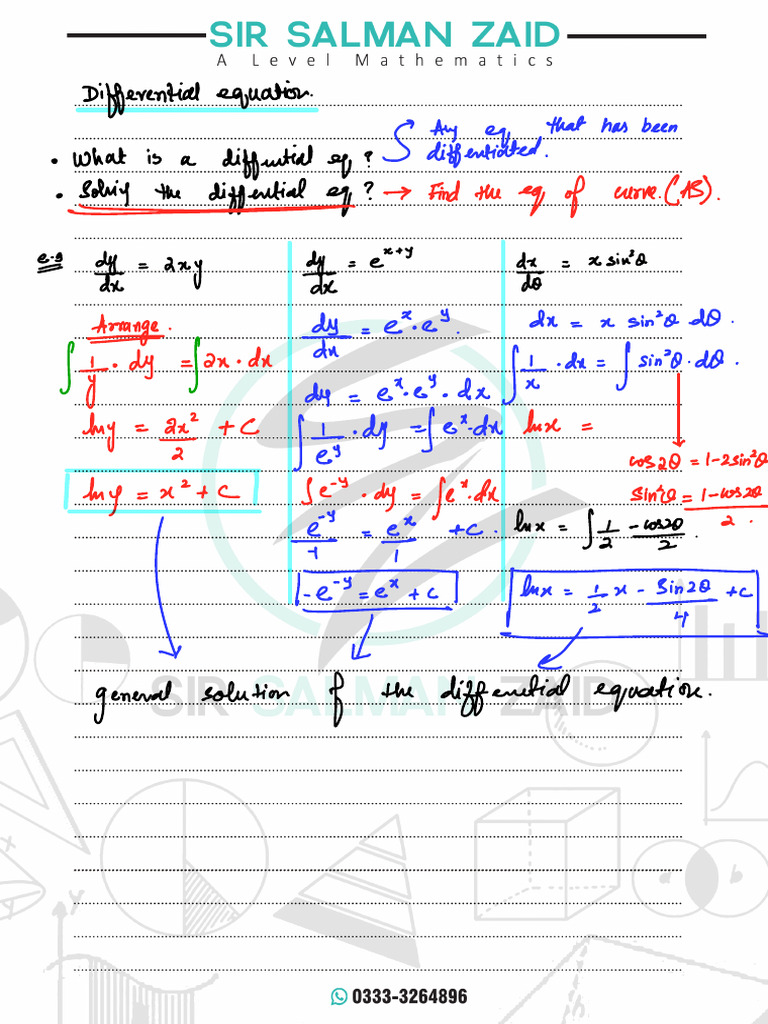 SIR SALMAN ZAID
A Level Mathematics
Differential equation.
• What is a diffential eq? Any eq that has been diffentiated.
• Solvig the diffential eq? → Find the eq of curve. (AS).
e.g dy/dx = 2xy
Arrange.
∫ 1/y · dy = ∫ 2x · dx
ln y = 2x²/2 + C
ln y = x² + C
dy/dx = e^(x+y)
dy/dx = e^x · e^y.
dy = e^x · e^y · dx
∫ 1/e^y · dy = ∫ e^x · dx
∫ e^-y · dy = ∫ e^x · dx
e^-y/-1 = e^x/1 + C.
-e^-y = e^x + C
dx/dθ = x sin²θ
dx = x sin²θ dθ.
∫ 1/x · dx = ∫ sin²θ · dθ.
ln x =
cos2θ = 1-2sin²θ
sin²θ = 1-cos2θ/2.
ln x = ∫ 1/2 - cos2θ/2
ln x = 1/2 x - Sin2θ/4 + C
general solution of the diffenetial equation.
SIR SALMAN ZAID
y
x
a
b
0333-3264896